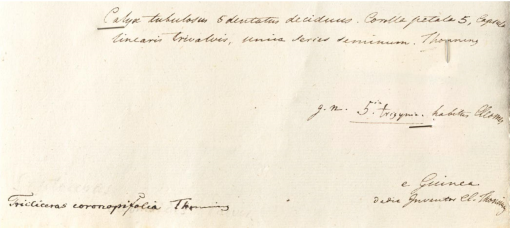 Calyx tubulosus 5 dentatus deciduus. Corolla petala 5, Capsula
linearis trivalvis, unica series seminum. Thonning
g. n. 5ia trigynia. habitus Cleomes
e Guinea
Tricliceras coronopifolia Thonning
dedit Inventor Cl. Thonning